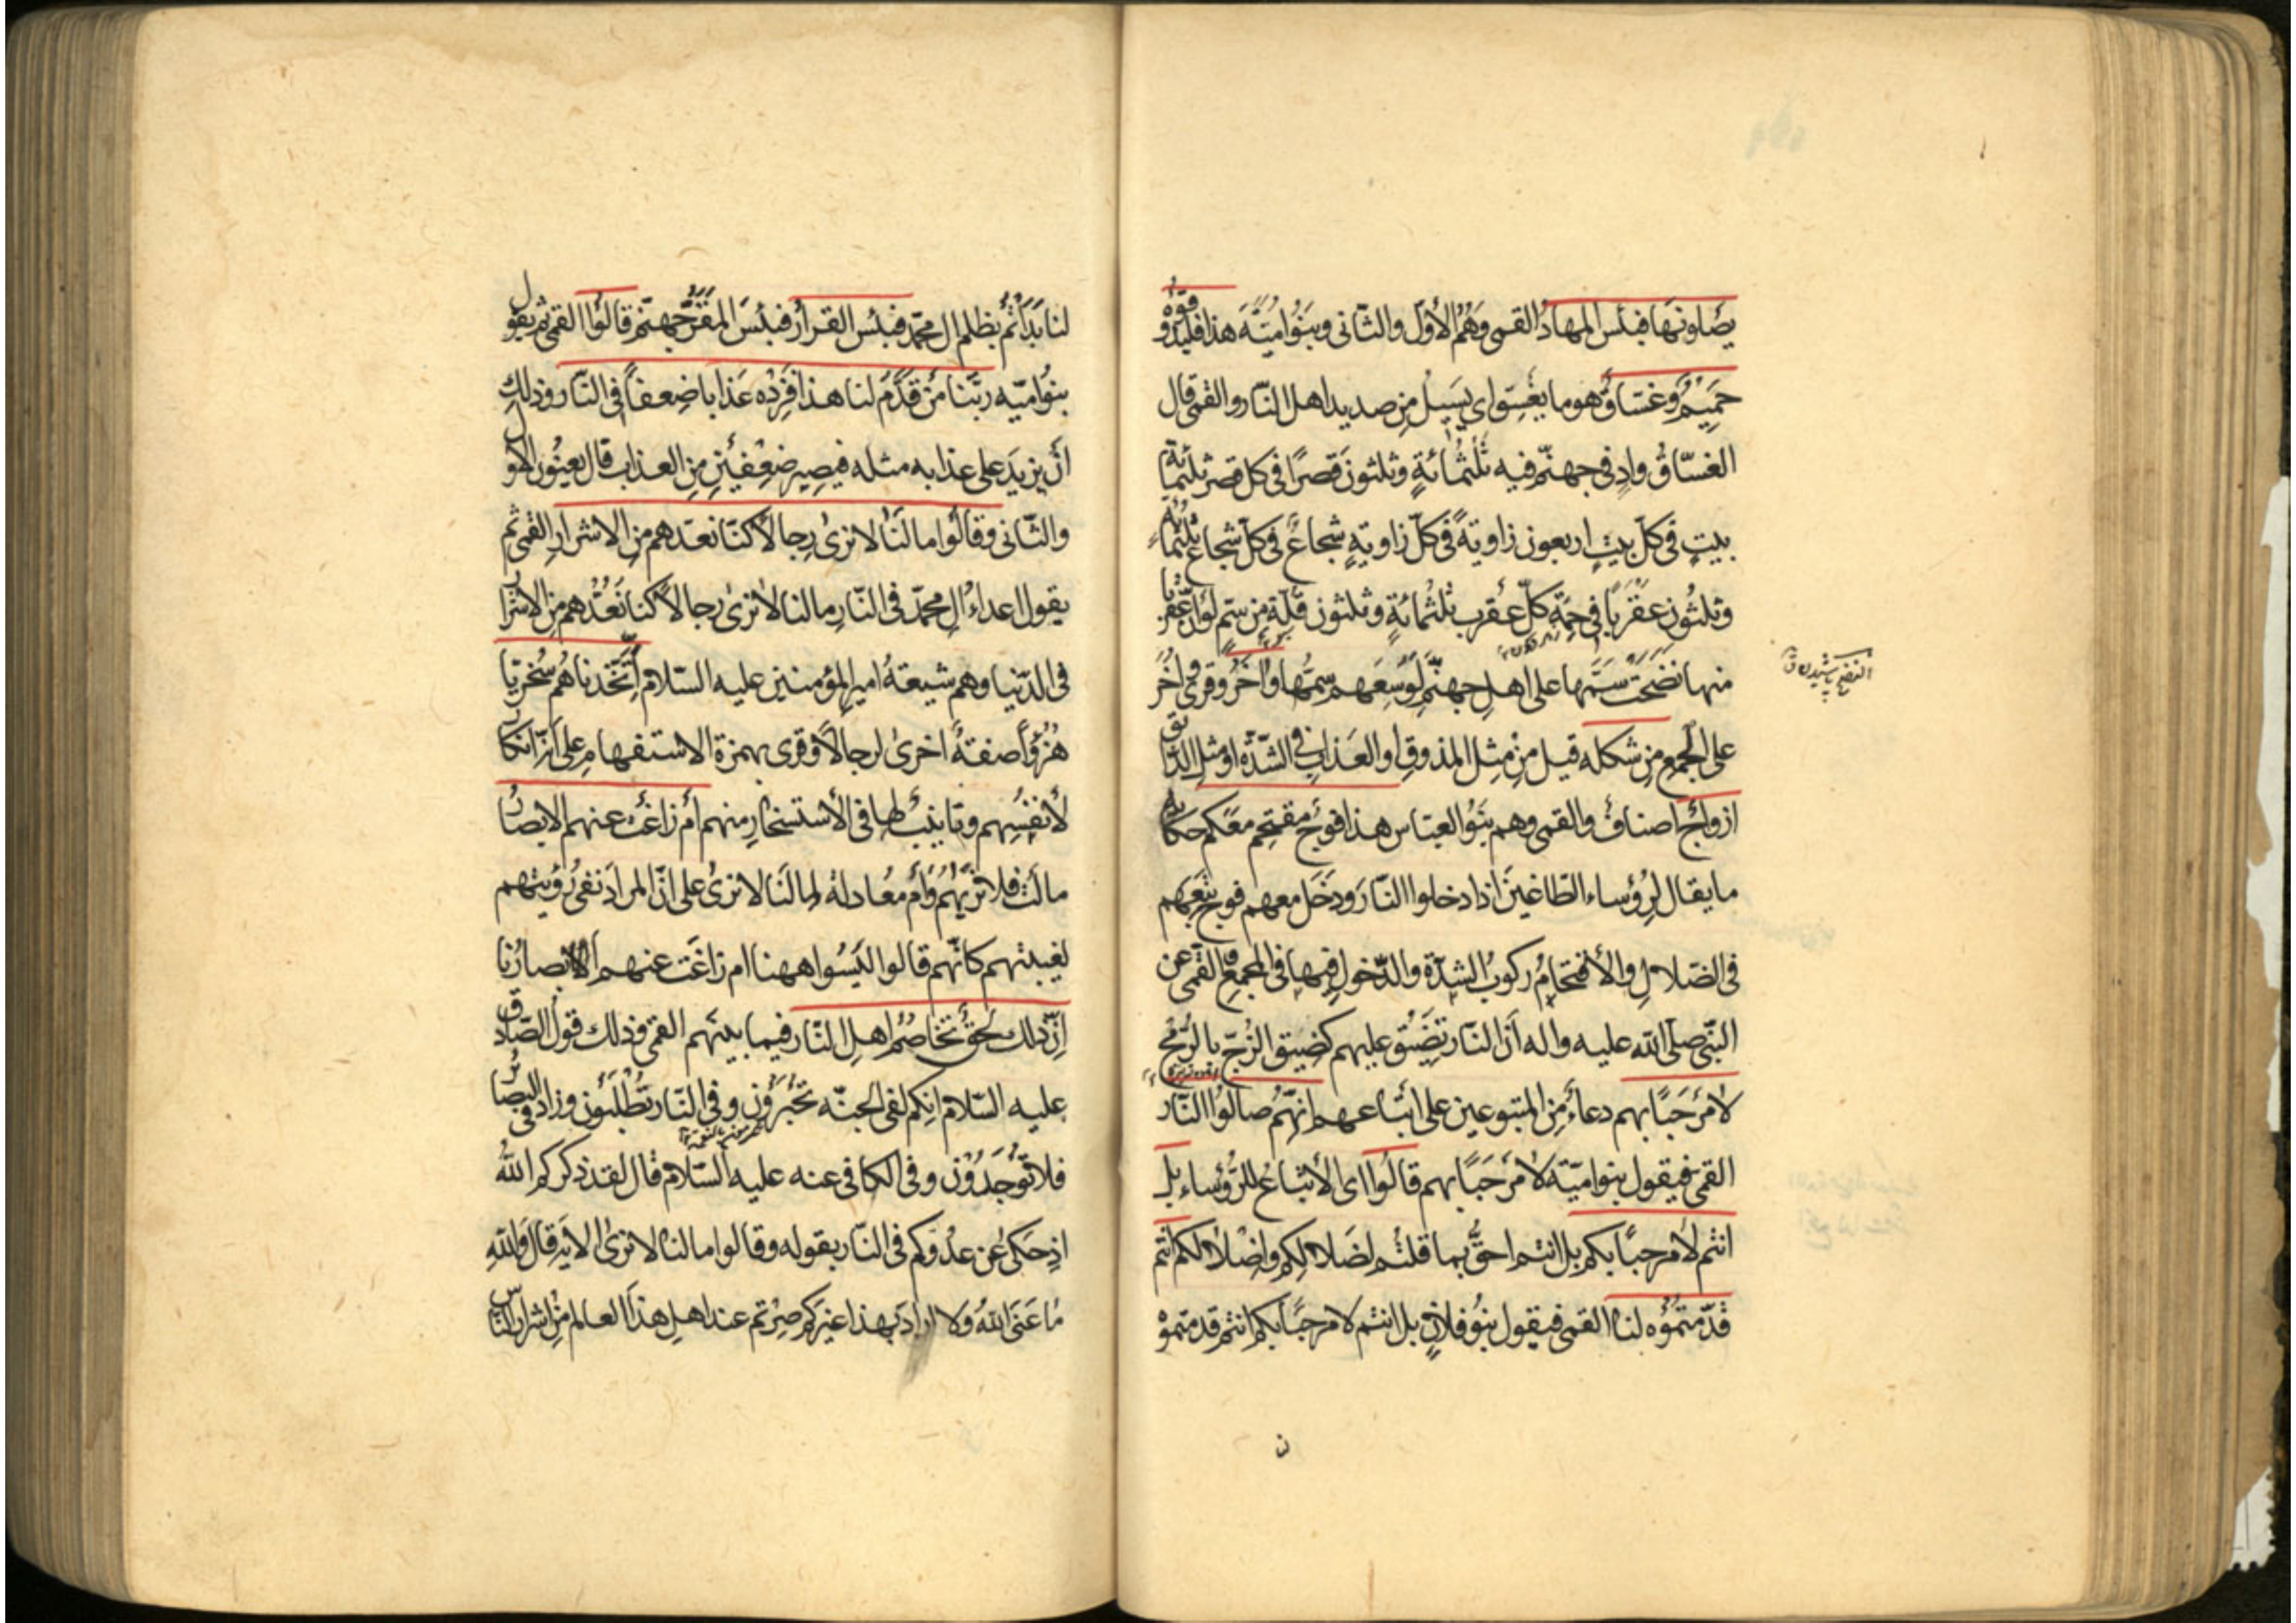 يصلونها فبئس المهاد القمى وهم الأول والثانى وبنو امية هذا فليذوقوه
حميم وغساق هو ما يغسق اى يسيل من صديد اهل النار والقمى قال
الغساق واد فى جهنم فيه ثلثمائة وثلثون قصرا فى كل قصر ثلثمائة
بيت فى كل بيت اربعون زاوية فى كل زاوية شجاع فى كل شجاع ثلثمائة
وثلثون عقربا فى حمة كل عقرب ثلثمائة وثلثون قلة من سم لو ان عقربا
منها نضحت سمها على اهل جهنم لوسعهم سمها واخر وقرئ اخر
النضح پاشيدن ق
على الجمع من شكله قيل من مثل المذوق او العذاب فى الشدة او مثل الذائق
ازواج اصناف والقمى وهم بنو العباس هذا فوج مقتحم معكم حكاية
ما يقال لرؤساء الطاغين اذا دخلوا النار ودخل معهم فوج تبعهم
فى الضلال والأقتحام ركوب الشدة والدخول فيها فى المجمع والقمى عن
النبى صلى الله عليه واله ان النار تضيق عليهم كضيق الزج بالرمح
لا مرحبا بهم دعاء من المتبوعين على اتباعهم انهم صالوا النار
القمى فيقول بنو امية لا مرحبا بهم قالوا اى الأتباع للرؤساء بل
انتم لا مرحبا بكم بل انتم احق بما قلتم لضلالكم واضلالكم انتم
قدمتموه لنا القمى فيقول بنو فلان بل انتم لا مرحبا بكم انتم قدمتموه
لنا بدأتم بظلم ال محمد فبئس القرار فبئس المقر جهنم قالوا القمى ثم يقول
بنو اميه ربنا من قدم لنا هذا فزده عذابا ضعفا فى النار وذلك
أن يزيد على عذابه مثله فيصير ضعفين من العذاب قال يعنون الاول
والثانى وقالوا ما لنا لا نرى رجالا كنا نعدهم من الاشرار القمى ثم
يقول اعداء ال محمد فى النار ما لنا لا نرى رجالا كنا نعدهم من الاشرار
فى الدنيا وهم شيعة امير المؤمنين عليه السلام أتخذناهم سخريا
هزؤا صفة اخرى لرجالا وقرى بهمزة الاستفهام على انه انكار
لأنفسهم وتأنيب لها فى الأستسخار منهم أم زاغت عنهم الابصار
مالت فلا نريهم وأم معادلة لما لنا لا نرى على ان المراد نفى رؤيتهم
لغيبتهم كانهم قالوا اليسوا ههنا ام زاغت عنهم الابصارنا
ان ذلك لحق تخاصم اهل النار فيما بينهم القمى وذلك قول الصادق
عليه السلام انكم لفى الجنة تحبرون وفى النار تطلبون وزاد فى البصائر
فلا توجدون وفى الكافى عنه عليه السلام قال لقد ذكركم الله
اذ حكى عن عدوكم فى النار بقوله وقالوا ما لنا لا نرى الايه قال والله
ما عنى الله ولا اراد بهذا غيركم صرتم عند اهل هذا العالم من اشرار الناس